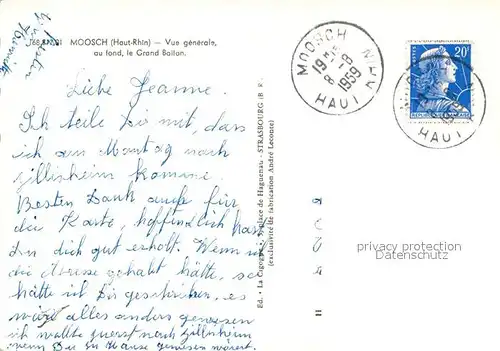 68.877.01 MOOSCH (Haut-Rhin) — Vue générale,
au fond, le Grand Ballon.
Liebe Jeanne.
Ich teile Dir mit, dass
ich am Montag nach
Zillisheim komme.
Besten Dank auch für
die Karte, hoffendlich hast
du dich gut erholt. Wenn ich
die Adresse gehabt hätte, so
hätte ich Dir geschrieben, es
wäre alles anders gewesen
ich wollte zuerst nach Zillisheim
wenn Du zu Hause gewesen wärest.
Ed. - La Cigogne, place de Haguenau - STRASBOURG (B. R.
(exclusivité de fabrication André Leconte)
MOOSCH
19
8-8
1959
HAUT RHIN
20F
HAUT
privacy protection
Datenschutz